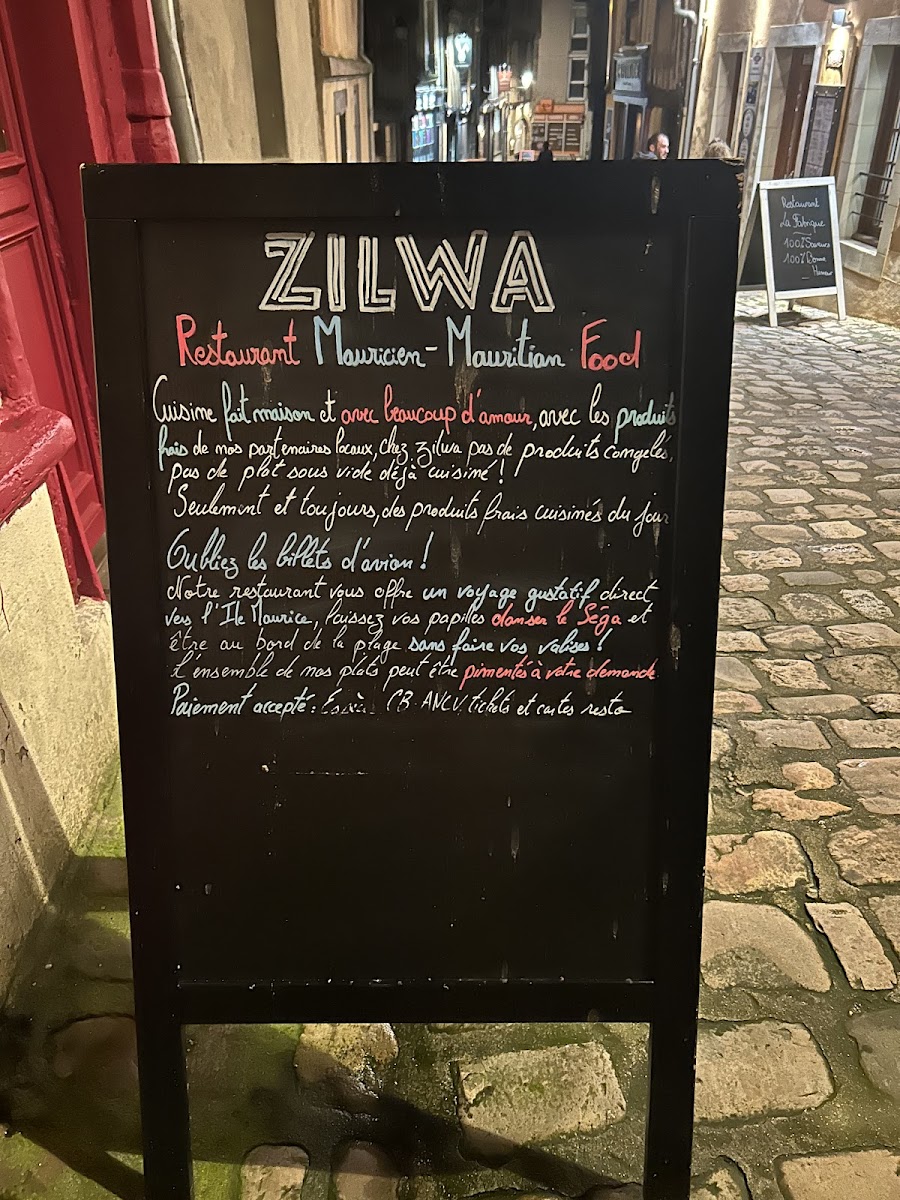 ZILWA
Restaurant Mauricien - Mauritian Food
Cuisine fait maison et avec beaucoup d'amour, avec les produits
frais de nos partenaires locaux, chez zilwa pas de produits congelés,
pas de plat sous vide déjà cuisiné !
Seulement et toujours, des produits frais cuisinés du jour
Oubliez les billets d'avion !
Notre restaurant vous offre un voyage gustatif direct
vers l'Ile Maurice, laissez vos papilles danser le Séga et
être au bord de la plage sans faire vos valises !
L'ensemble de nos plats peut être pimentés à votre demande
Paiement accepté : CB. ANCV, tickets et cartes resto
Restaurant
La Fabrique
100% Saveurs
100% Bonne
Humeur